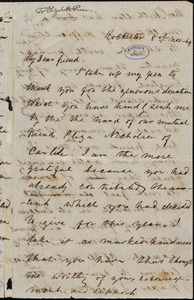 To Elizabeth Pease
Rochester 8th Nov. 49
My dear friend.
I take up my pen to
thank you for the generous donation
that you have kindly sent me
by the hand of our mutual
friend Eliza Nicholson of
Carlisle. I am the more
grateful because you had
already contributed the am
ount which you had decided
to give for this year. I
take it as marked kindness
that you have thus thought
me worthy of your encourage
ment and support.